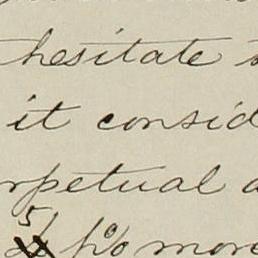 hesitate
it consid
rpetual a
5 % more